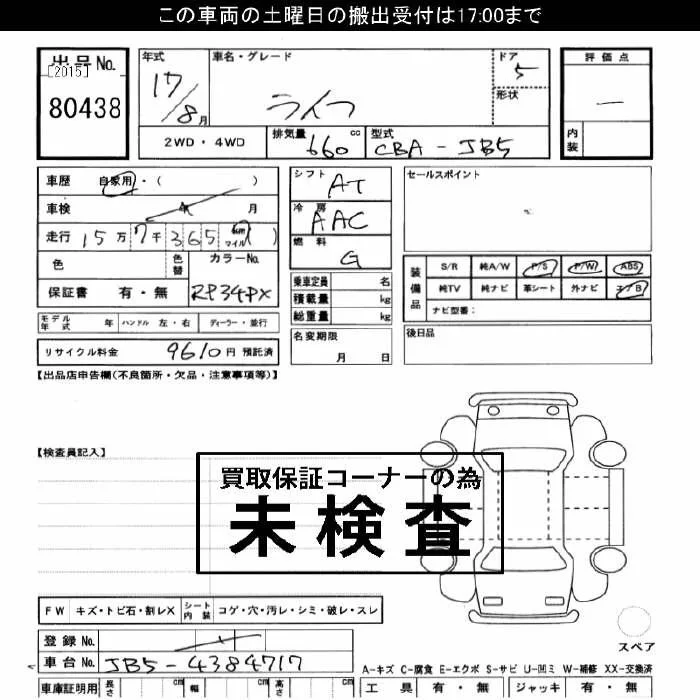 この車両の土曜日の搬出受付は17:00まで
出品No.
[2015]
80438
年式
17/8月
車名・グレード
ライフ
ドア
5
形状
評価点
—
内装
2WD・4WD
排気量
660 cc
型式
CBA-JB5
車歴 自家用・( )
車検 年 月
走行 15万7千365 km マイル ( )
色
色替
カラーNo.
RP34PX
保証書 有・無
シフト
AT
冷房
AAC
燃料
G
乗車定員 名
積載量 kg
総重量 kg
セールスポイント
装備品
S/R 純A/W P/S P/W ABS
純TV 純ナビ 革シート 外ナビ エアB
ナビ型番:
モデル年式 年 ハンドル 左・右 ディーラー・並行
名変期限
月 日
後日品
リサイクル料金 9610円 預託済
【出品店申告欄(不良箇所・欠品・注意事項等)】
【検査員記入】
買取保証コーナーの為
未検査
FW キズ・トビ石・割レX シート内装 コゲ・穴・汚レ・シミ・破レ・スレ
登録No.
車台No. JB5-4384717
スペア
A-キズ C-腐食 E-エクボ S-サビ U-凹ミ W-補修 XX-交換済
車庫証明用 長さ cm 幅 cm 高さ cm
工具 有・無 ジャッキ 有・無